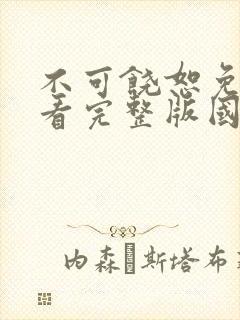 不可饶恕免
看完整版国
内森·斯塔布